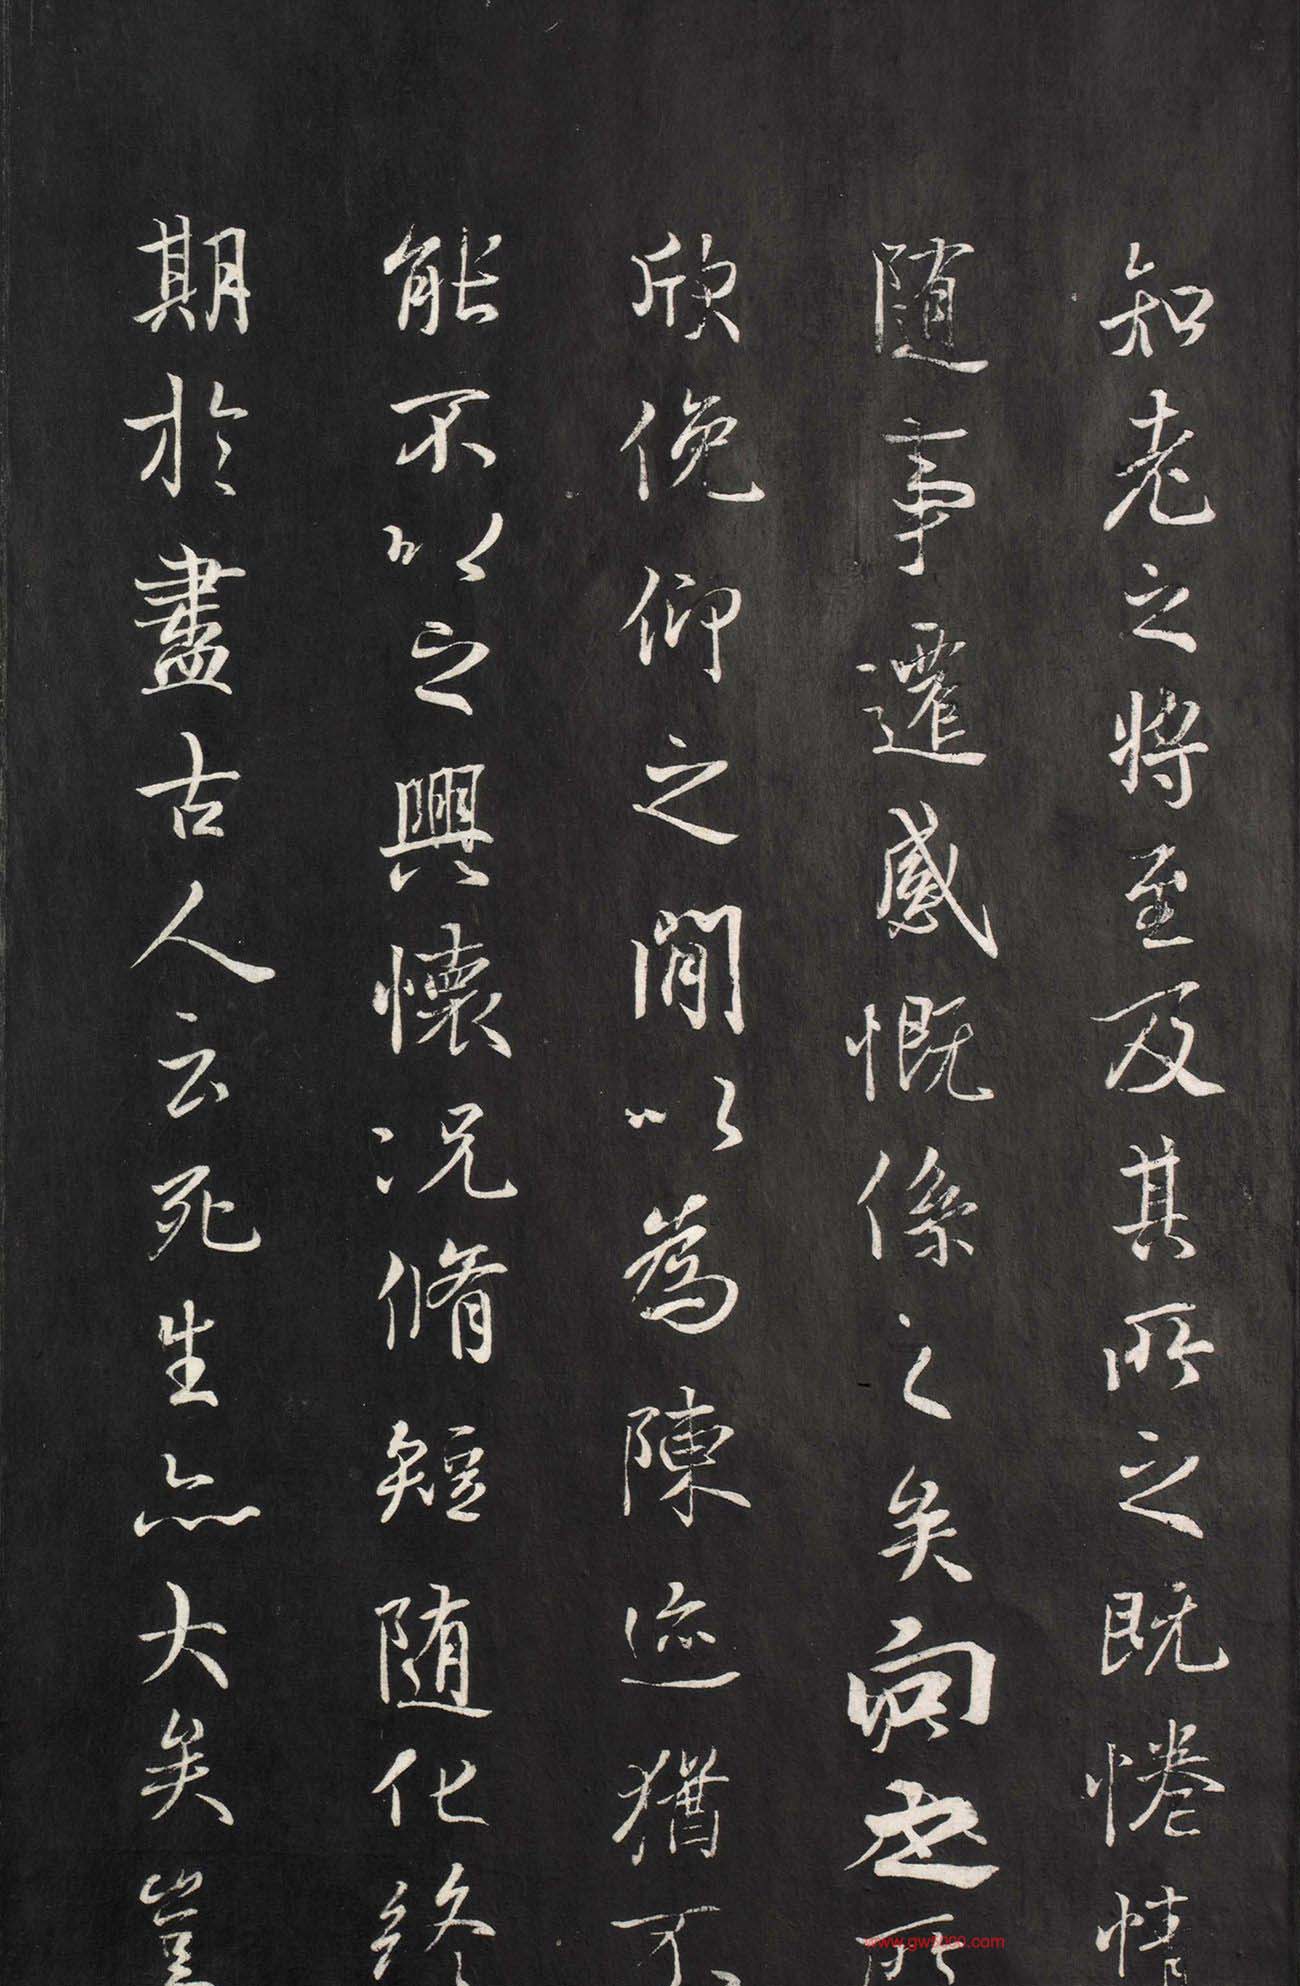 知老之將至及其所之既惓情
随事遷感慨係之矣向之所
欣俛仰之閒以為陳迹猶不
能不以之興懷况脩短随化終
期於盡古人云死生亦大矣豈
www.gw5000.com